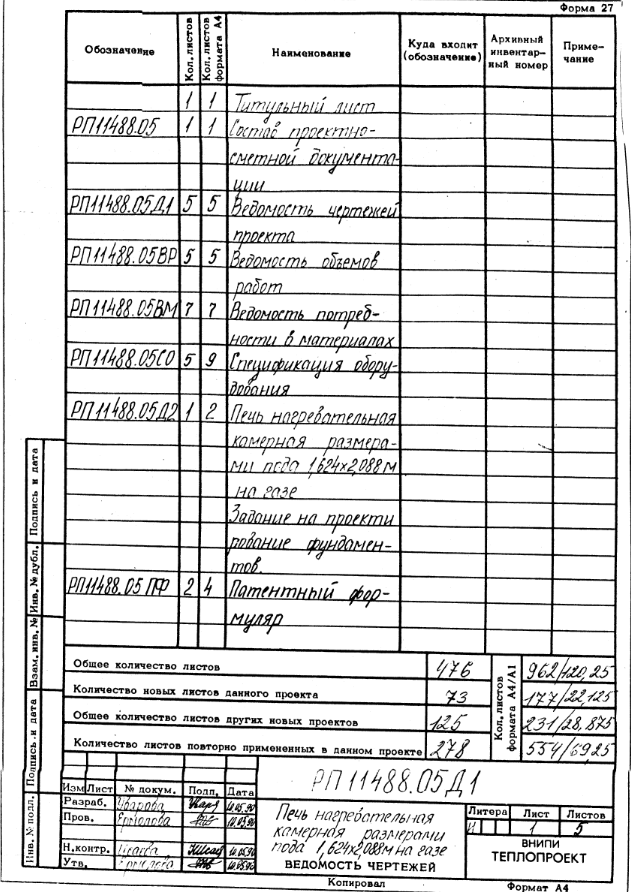 Форма 27
Обозначение Кол. листов Кол. листов формата А4 Наименование Куда входит (обозначение) Архивный инвентарный номер Примечание
1 1 Титульный лист
РП11488.05 1 1 Состав проектно-
сметной документа-
ции
РП11488.05Д1 5 5 Ведомость чертежей
проекта
РП11488.05ВР 5 5 Ведомость объемов
работ
РП11488.05ВМ 7 7 Ведомость потреб-
ности в материалах
РП11488.05СО 5 9 Спецификация обору-
дования
РП11488.05Д2 1 2 Печь нагревательная
камерная размера-
ми пода 1,624х2,088м
на газе
Задание на проекти
рование фундамен-
тов.
РП11488.05 ПФ 2 4 Патентный фор-
муляр
Общее количество листов 476 962/120,25
Количество новых листов данного проекта 73 177/22,125
Общее количество листов других новых проектов 125 231/28,875
Количество листов повторно примененных в данном проекте 278 554/69,25
Кол. листов формата А4/А1
Инв. № подл. Подпись и дата Взам. инв. № Инв. № дубл. Подпись и дата
РП11488.05Д1
Изм Лист № докум. Подп. Дата
Разраб. Уварова
Пров. Ермолова
Н.контр.
Утв.
Печь нагревательная
камерная размерами
пода 1,624х2,088м на газе
ВЕДОМОСТЬ ЧЕРТЕЖЕЙ
Литера Лист Листов
И 1 5
ВНИПИ
ТЕПЛОПРОЕКТ
Копировал Формат А4